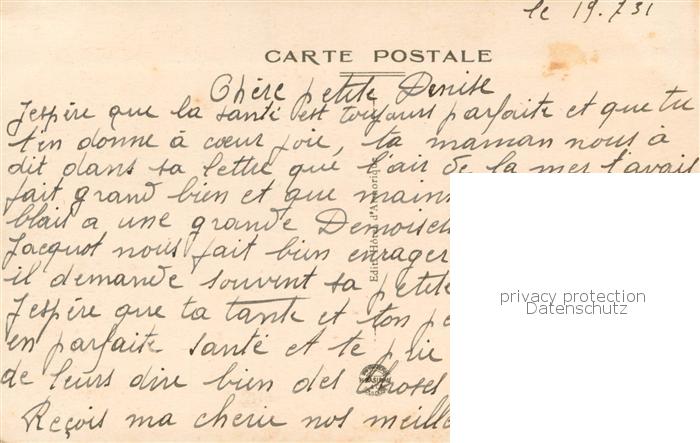 le 19.7.31
CARTE POSTALE
Chère petite Denise
J'espère que la santé est toujours parfaite et que tu
t'en donne à cœur joie, ta maman nous à
dit dans sa lettre que l'air de la mer t'avait
fait grand bien et que main
blait a une grande Demoisel
Jacquot nous fait bien enrager
il demande souvent sa petite
J'espère que ta tante et ton
en parfaite santé et te prie
de leurs dire bien des choses
Reçois ma cherie nos meille
Edit. Hôtel d'Armorique
privacy protection
Datenschutz